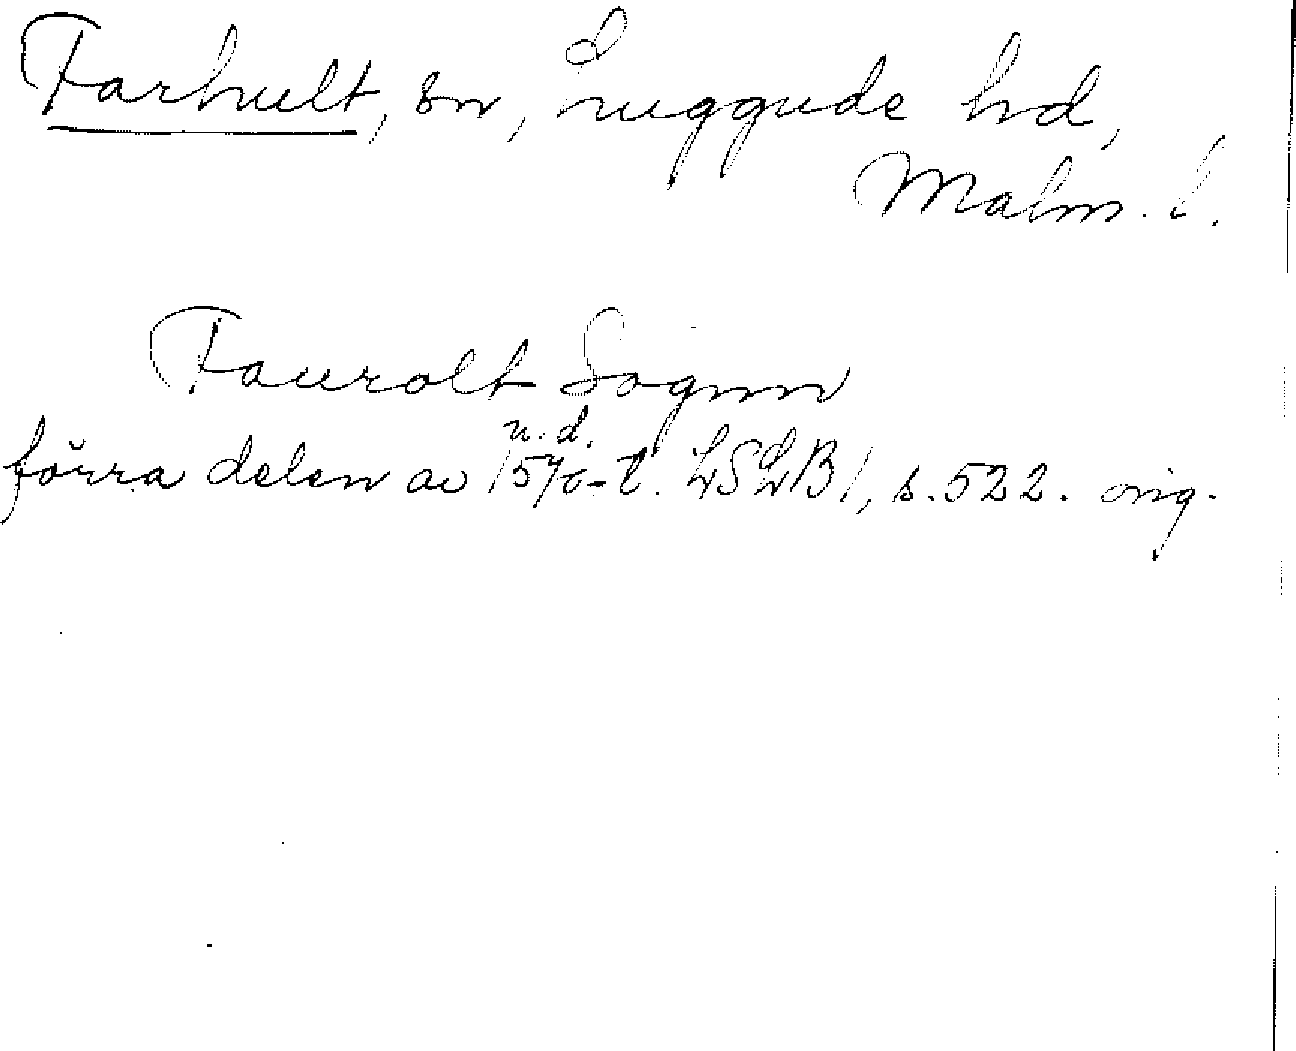 Farhult, sn, Luggude hd,
Malm. l.
Faurolt Sognn
u. d.
förra delen av 1570-t. LSLB 1, s. 522. orig.